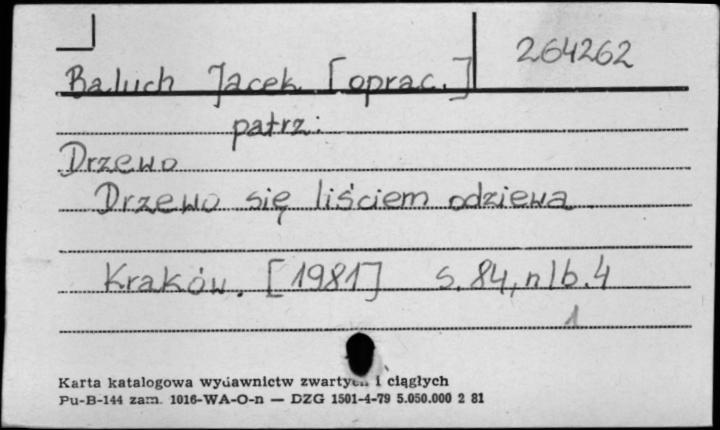 264262
Baluch Jacek [oprac.]
patrz:
Drzewo
Drzewo się liściem odziewa
Kraków. [1981] s. 84, nlb. 4
1
Karta katalogowa wydawnictw zwartych i ciągłych
Pu-B-144 zam. 1016-WA-O-n — DZG 1501-4-79 5.050.000 2 81